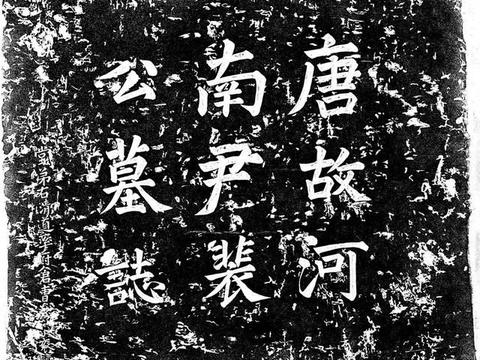 唐故河
南尹裴
公墓誌